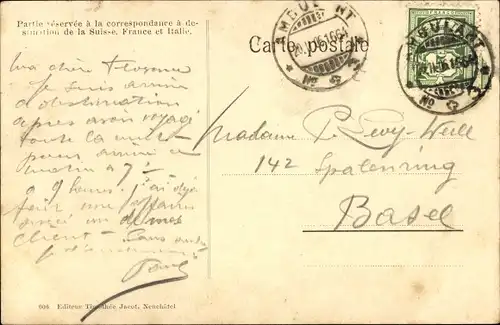 Partie réservée à la correspondance à destination de la Suisse, France et Italie.
Carte postale
AMBULANT
No
AMBULANT
No
Ma chère Florence
Je suis arrivé
à destination
après avoir voyagé
toute la nuit
pour arriver ce
matin à 7
9 heures. j'ai déjà
fait une affaire
avec un de mes
client
Paul
Madame P. Levy-Weill
142 Spalenring
Basel
606 Editeur Timothée Jacot, Neuchâtel